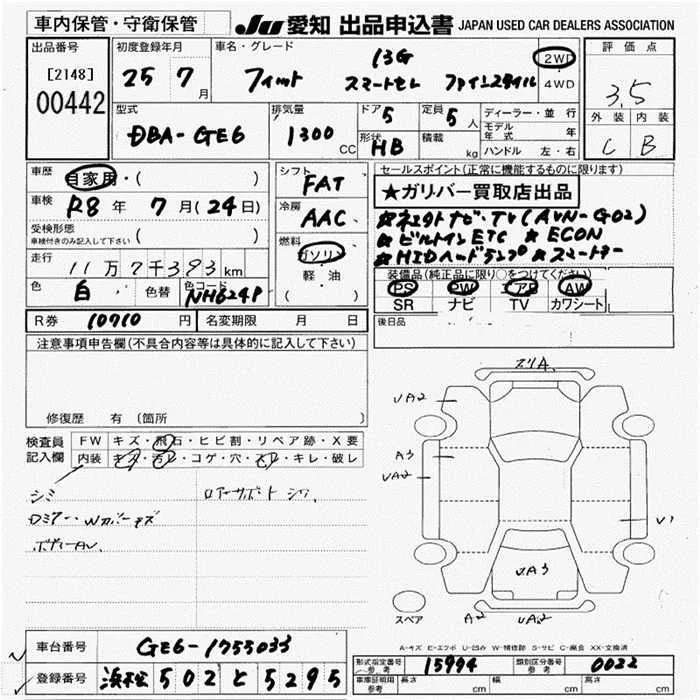 車内保管・守衛保管
JU 愛知 出品申込書 JAPAN USED CAR DEALERS ASSOCIATION
出品番号
[2148]
00442
初度登録年月
25 7月
車名・グレード
13G
フィット スマートセレ ファインスタイル
2WD
4WD
評価点
3.5
外装 内装
C B
型式
DBA-GE6
排気量
1300 CC
ドア 5
形状 HB
定員 5 人
積載 kg
ディーラー・並行
モデル年式 年
ハンドル 左・右
車歴 自家用・( )
車検 R8年 7月(24日)
受検形態 ( )
車検付きのみ記入して下さい
走行 11万7千393km
色 白 色替 色コード NH624P
シフト FAT
冷房 AAC
燃料 ガソリン
軽・油
( )
R券 10710 円 名変期限 月 日
セールスポイント(正常に機能するものに限ります)
★ガリバー買取店出品
★ネオクトナビ・TV(AVN-G02)
★ビルトインETC ★ECON
★HIDヘッドランプ ★スマートキー
装備品(純正品に限り○をつけてください)
PS PW エアB AW
SR ナビ TV カワシート
後日品
注意事項申告欄(不具合内容等は具体的に記入して下さい)
修復歴 有 (箇所 )
検査員記入欄
FW キズ・飛石・ヒビ割・リペア跡・X要
内装 キズ・汚レ・コゲ・穴・スレ・キレ・破レ
シミ
ロアーサポート シワ
Dミラー・Wカバーキズ
ボディーAU
ズリA
UA2
A3
UA2
U1
UA3
A2
UA2
スペア
A-キズ E-エクボ U-凹み W-補修跡 S-サビ C-腐食 XX-交換済
車台番号 GE6-1755033
登録番号 浜松 502 と 5295
形式指定番号 参考 15994 類別区分番号 参考 0022
車庫証明用 参考 長さ cm 幅 cm 高さ cm